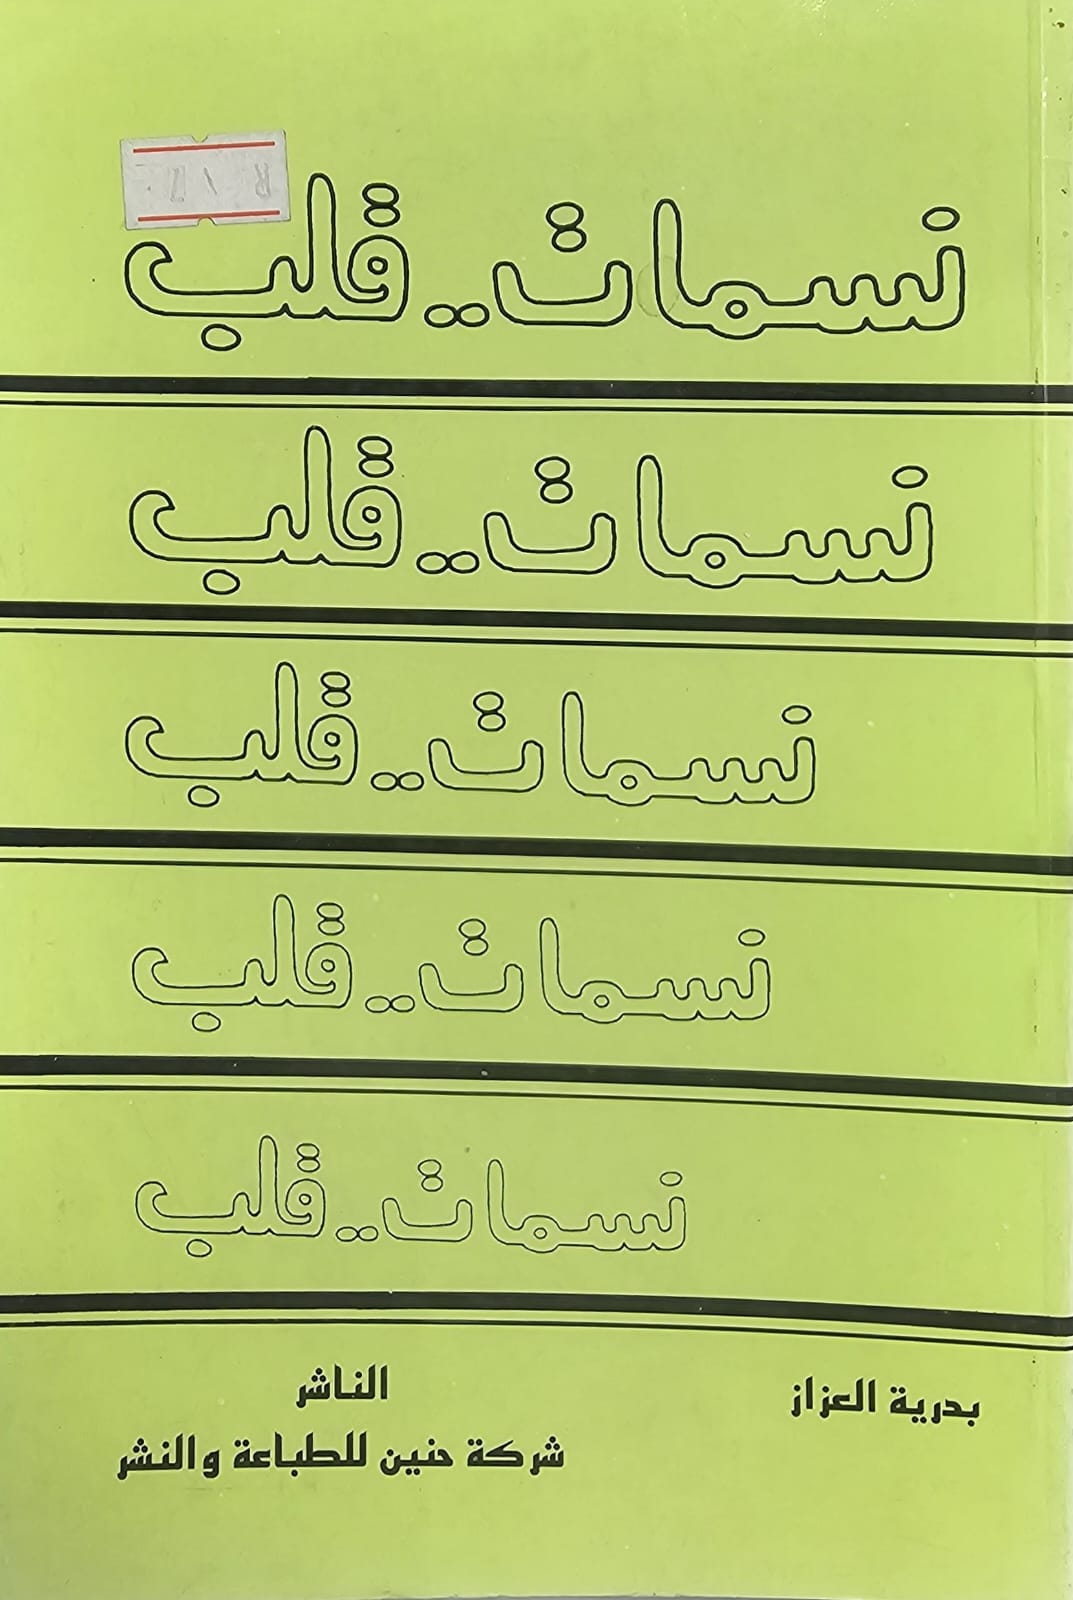 نسمات .. قلب
نسمات .. قلب
نسمات .. قلب
نسمات .. قلب
نسمات .. قلب
بدرية العزاز
الناشر
شركة حنين للطباعة والنشر